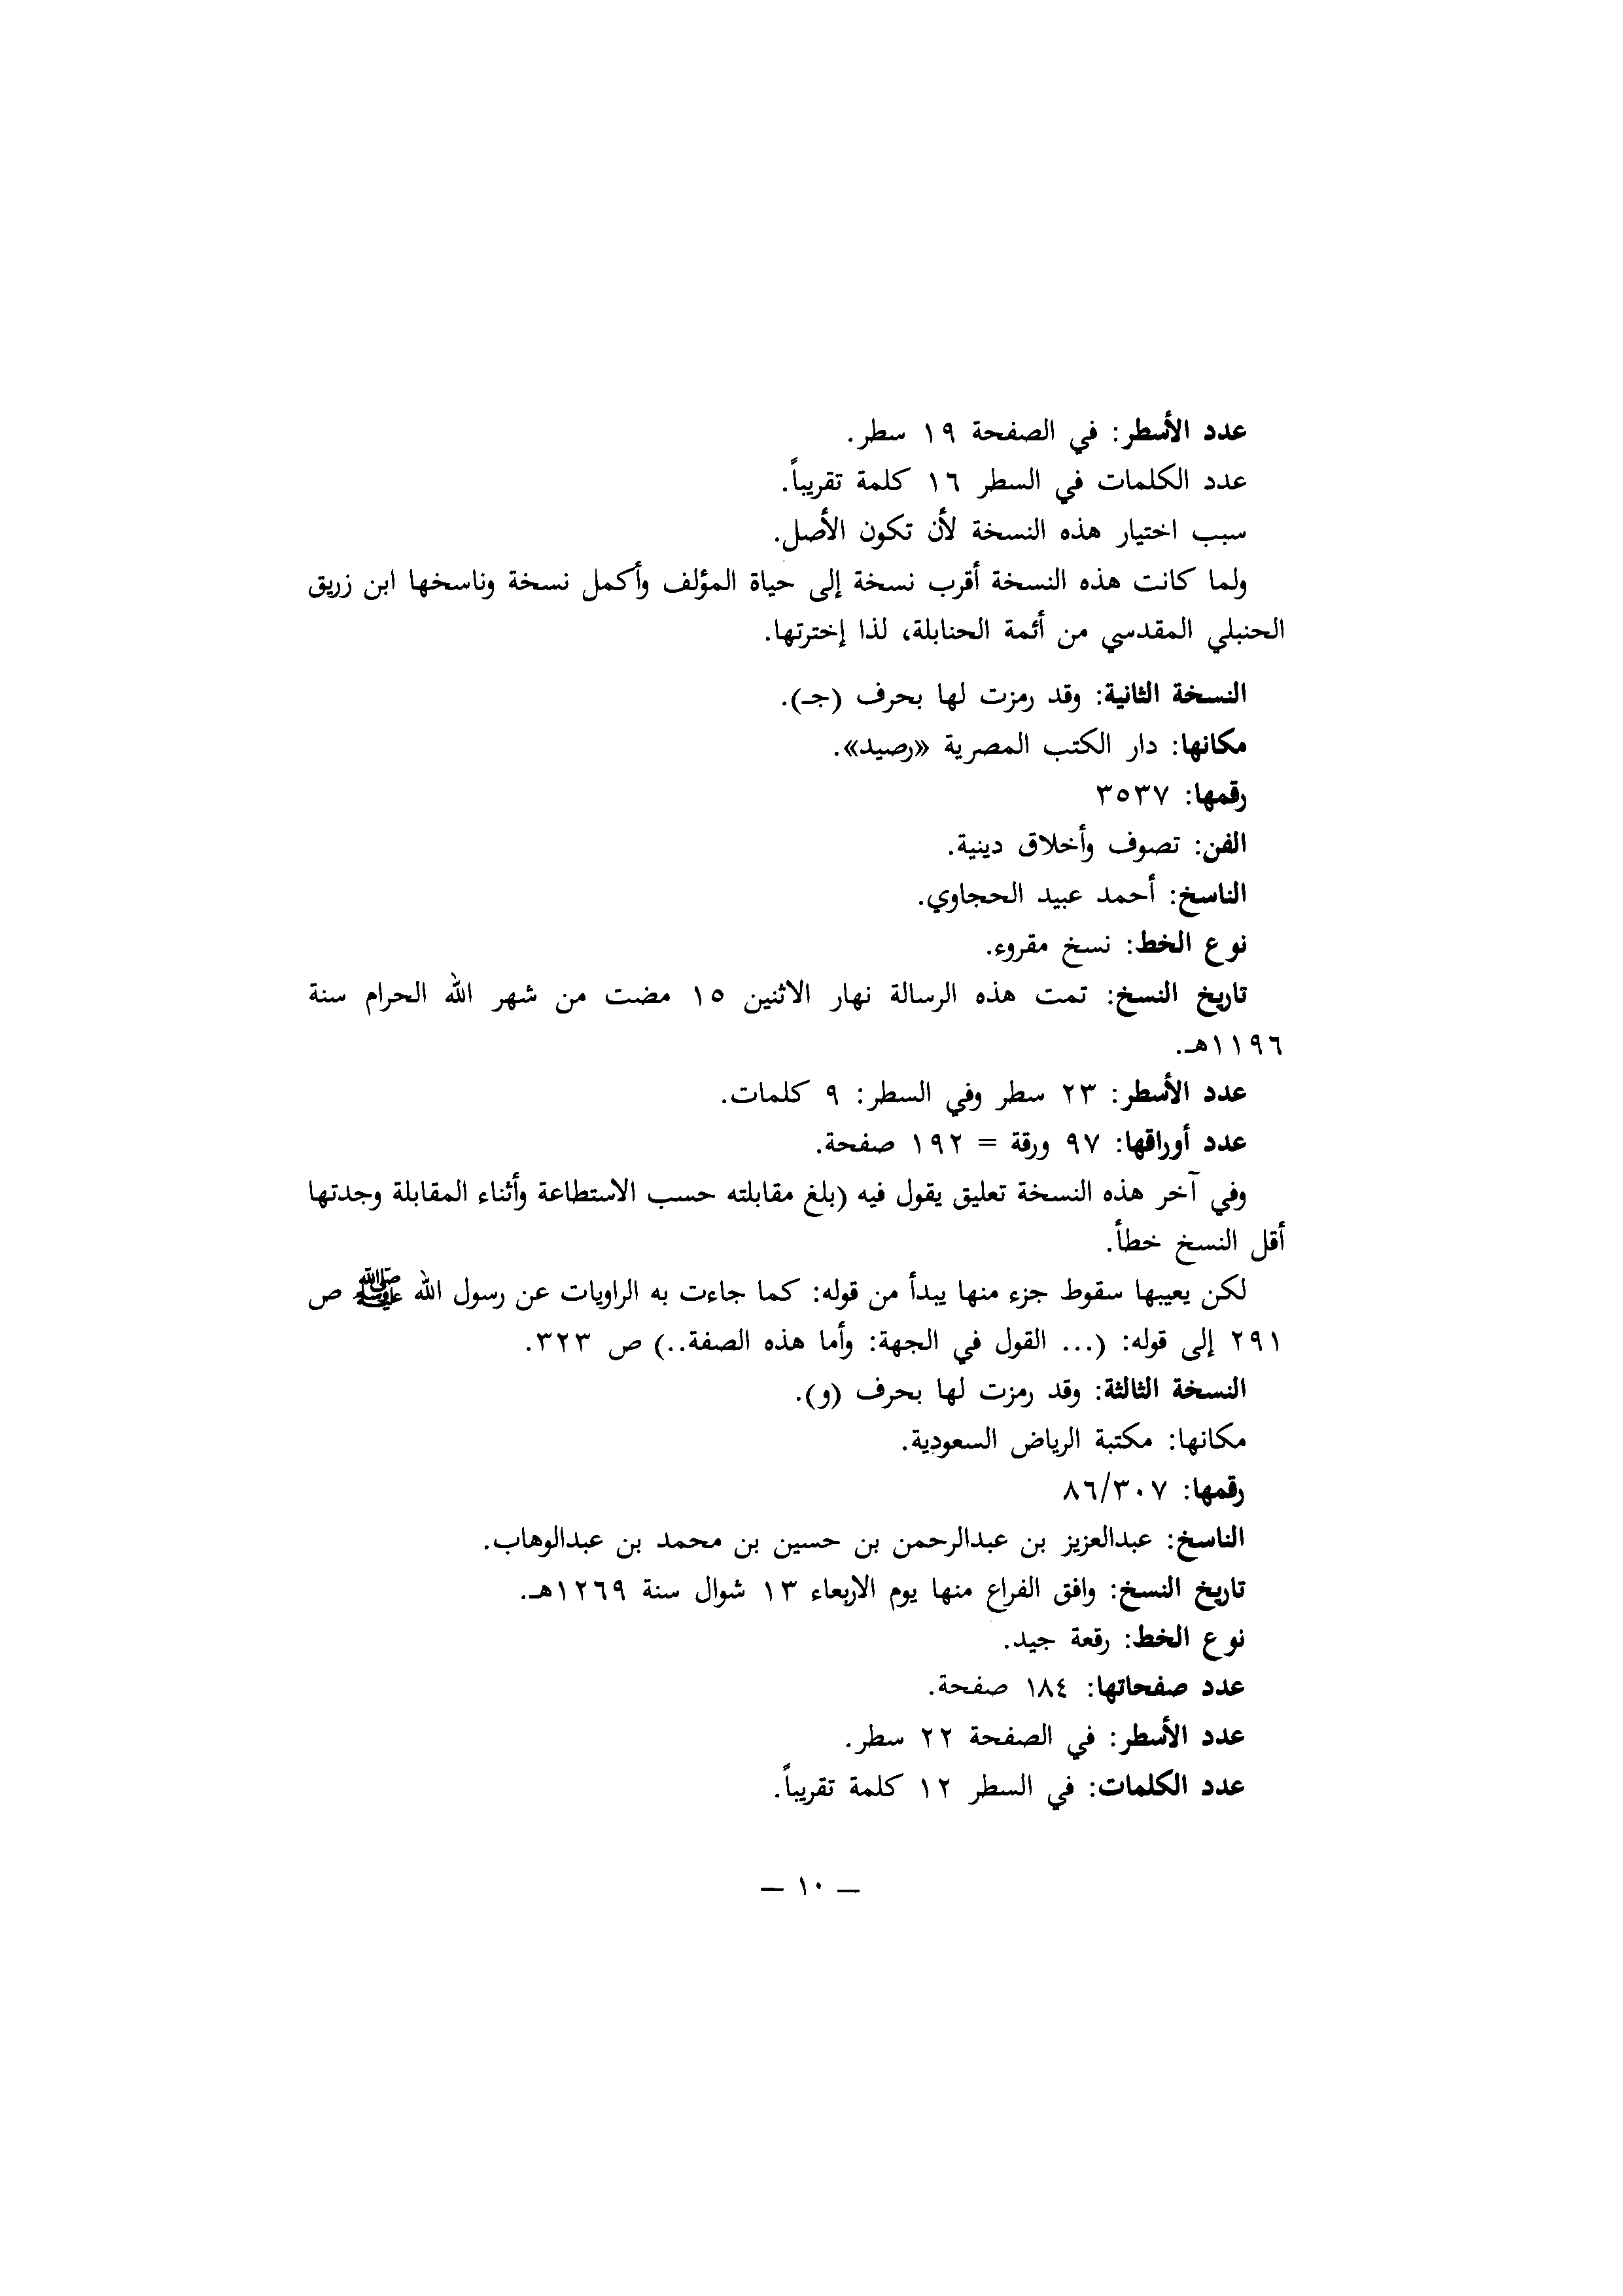 عدد الأسطر: في الصفحة ١٩ سطر.
عدد الكلمات في السطر ١٦ كلمة تقريباً.
سبب اختيار هذه النسخة لأن تكون الأصل.
ولما كانت هذه النسخة أقرب نسخة إلى حياة المؤلف وأكمل نسخة وناسخها ابن زريق
الحنبلي المقدسي من أئمة الحنابلة، لذا إخترتها.
النسخة الثانية: وقد رمزت لها بحرف (جـ).
مكانها: دار الكتب المصرية «رصيد».
رقمها: ٣٥٣٧
الفن: تصوف وأخلاق دينية.
الناسخ: أحمد عبيد الحجاوي.
نوع الخط: نسخ مقروء.
تاريخ النسخ: تمت هذه الرسالة نهار الاثنين ١٥ مضت من شهر الله الحرام سنة
١١٩٦هـ.
عدد الأسطر: ٢٣ سطر وفي السطر: ٩ كلمات.
عدد أوراقها: ٩٧ ورقة = ١٩٢ صفحة.
وفي آخر هذه النسخة تعليق يقول فيه (بلغ مقابلته حسب الاستطاعة وأثناء المقابلة وجدتها
أقل النسخ خطأ.
لكن يعيبها سقوط جزء منها يبدأ من قوله: كما جاءت به الراويات عن رسول الله ﷺ ص
٢٩١ إلى قوله: (... القول في الجهة: وأما هذه الصفة..) ص ٣٢٣.
النسخة الثالثة: وقد رمزت لها بحرف (و).
مكانها: مكتبة الرياض السعودية.
رقمها: ٨٦/٣٠٧
الناسخ: عبدالعزيز بن عبدالرحمن بن حسين بن محمد بن عبدالوهاب.
تاريخ النسخ: وافق الفراغ منها يوم الاربعاء ١٣ شوال سنة ١٢٦٩هـ.
نوع الخط: رقعة جيد.
عدد صفحاتها: ١٨٤ صفحة.
عدد الأسطر: في الصفحة ٢٢ سطر.
عدد الكلمات: في السطر ١٢ كلمة تقريباً.
— ١٠ —